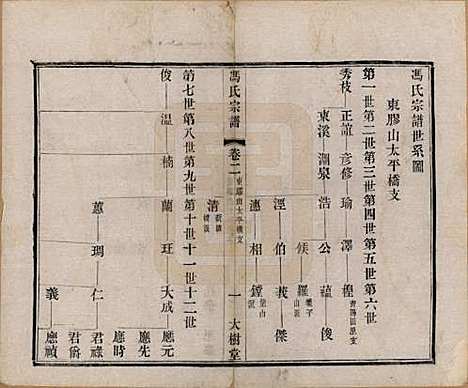 馮氏宗譜世系圖
東膠山太平橋支
第一世第二世第三世第四世第五世第六世
秀枝 正誼 彥修 瑜 澤
東溪 湖泉 浩 公蘊 俊
候 羅
涇 伯 莪 傑
漣 相 鏜
清
馮氏宗譜
卷二
東膠山太平橋支
一
大樹堂
第七世第八世第九世第十世十一世十二世
俊 溫 楠 蘭 玨 大成 應元
應先
應時
蕙 琱 仁 君祿
君爵
義 應禎